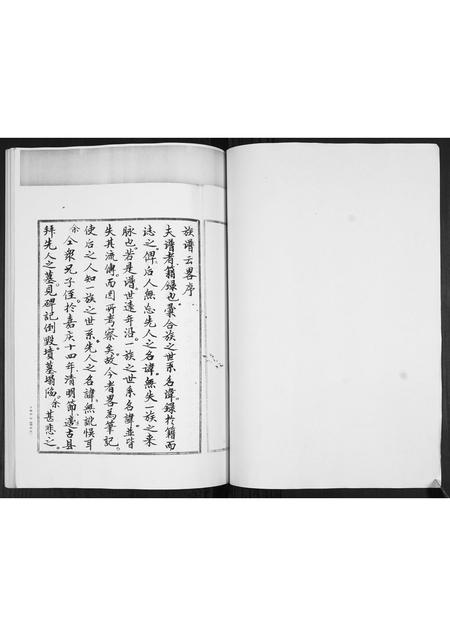 族谱云畧序
夫谱者籍録也彙合族之世系名諱録於籍而
誌之俾后人無忘先人之名諱無失一族之来
脉也若是谱世遠年沿一族之世系名諱並皆
失其流傳而因所考察矣故今者畧為筆記
使后之人知一族之世系先人之名諱無訛悮耳
余仝衆兄子侄於嘉庆十四年清明節古县
拜先人之墓見碑記倒毀墳墓塌陷余甚悲之